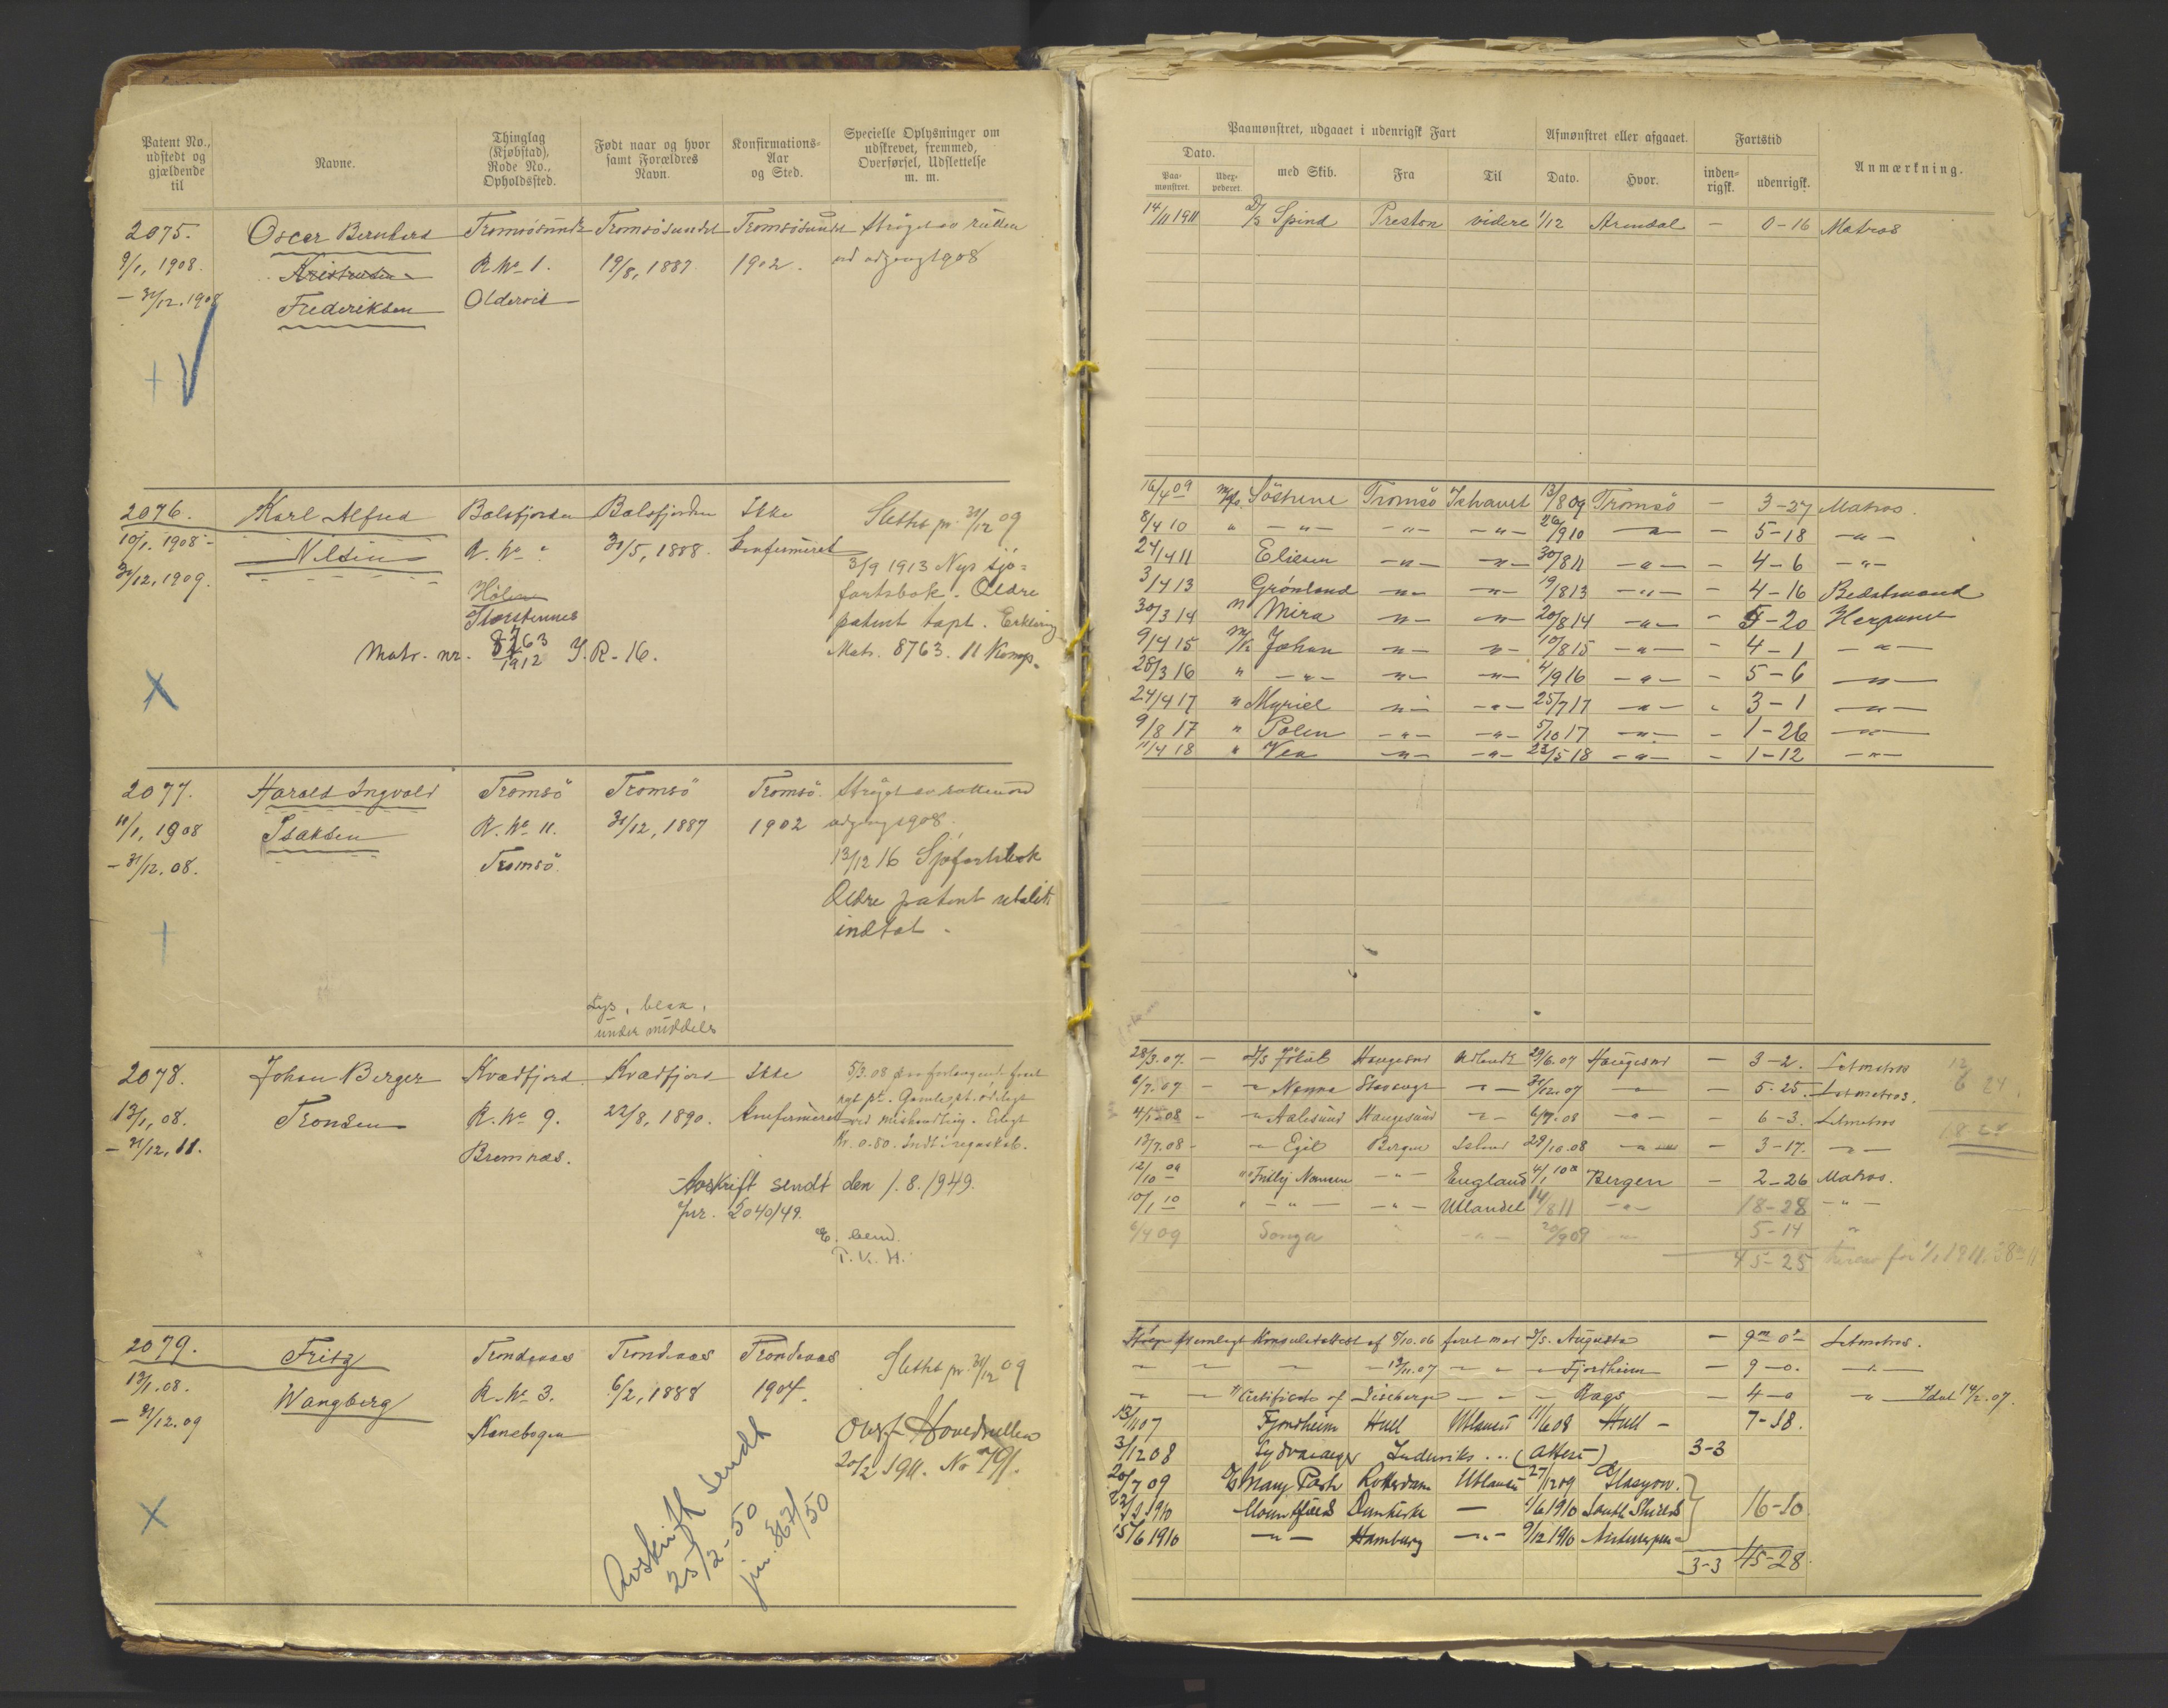 Patent No., udstedt og gjældende til
Navne.
Thinglag (Kjøbstad), Rode No., Opholdssted.
Født naar og hvor samt Forældres Navn.
Konfirmations-Aar og Sted.
Specielle Oplysninger om udskrevet, fremmed, Overførsel, Udslettelse m. m.
2075. Oscar Bernhard Tromsösundet Tromsösundet Tromsösundet Strøget av rullen
9/1, 1908. Kristensen R. No 1. 19/8, 1887 1902. ved udgang 1908
- 31/12. 1908 Frederiksen Oldervik
2076. Karl Alfred Balsfjorden Balsfjorden Ikke Slettet pr. 31/12 09
10/1. 1908 - Nilsen R. No " 31/5, 1888. konfirmeret
31/12, 1909. 3/9 1913 Ny sjö-
Holen fartsbok. Ældre
Storstennes patent tapt. Erklæring
Matr. nr. 8763/1912 I. R. - 16. Matr. 8763. 11 Komp.
2077. Harald Ingvald Tromsö Tromsö Tromsö. Strøget av rullen ved
11/1, 1908 Isaksen R. No 11. 31/12, 1887 1902 udgang 1908.
- 31/12. 08. Tromsö 13/12 16 Sjøfartsbok
Ældre patent
indtat.
Lys, blaa,
under middels
2078. Johan Berger Kvædfjord Kvædfjord Ikke 5/3. 08 paa forlangende faaet
13/1, 08. Tronsen R. No 9. 22/8, 1890. konfirmeret nyt pt. Gamle pt. ødelagt
ved mishandling. Erlagt
- 31/12, 11. Bremnæs. Kr. 0.80. Indt. i regnskab.
Avskrift sendt den 1. 8. 1949.
Jnr. 2040/49.
E. bem.
T. K. H.
2079. Fritz Trondenes Trondenes Trondenes Slettet pr. 31/12 09
13/1. 08. Wangberg R. No 3. 6/2, 1888 1904.
- 31/12. 09 Kanebogen Overf. Hovedrullen
20/2 1911. No 791.
Avskrift sendt
25/2-50
jnr. 867/50
Paamønstret, udgaaet i udenrigsk Fart
Afmønstret eller afgaaet.
Fartstid
Anmærkning.
Dato.
Paa-mønstret.
Udex-pederet.
med Skib.
Fra
Til
Dato.
Hvor.
inden-rigsk.
udenrigsk.
14/11 1911 D/S Spind Preston videre 1/12 Arendal - 0-16 Matros
16/4 09 M/Sk. Söstrene Tromsö Ishavet 13/8 09 Tromsö - 3-27 Matros.
8/4 10 " -"- -"- -"- 26/9 10 -"- - 5-18 -"-
24/4 11 Eliesen -"- -"- 30/8 11 -"- - 4-6 -"-
3/4 13 Grönland -"- -"- 19/8 13 -"- - 4-16 Bedstmand
30/3 14 " Mira -"- -"- 20/8 14 -"- - 5-20 Harpuner
9/4 15 M/K Johan -"- -"- 10/8 15 -"- - 4-1 -"-
28/3 16 " -"- -"- -"- 4/9 16 -"- - 5-6 -"-
24/4 17 " Myriel -"- -"- 25/7 17 -"- - 3-1 -"-
9/8 17 " Polen -"- -"- 5/10 17 -"- - 1-26 -"-
11/4 18 " Vea -"- -"- 23/5 18 -"- - 1-12 -"-
28/3. 07. - D/S Jökul Haugesund Udlandet 29/6. 07 Haugesund - 3-2. Letmatros
6/7. 07 - " Nanna Stavanger -"- 31/12. 07 -"- - 5-25. Letmatros.
4/1 08 - " Aalesund Haugesund -"- 6/7. 08 -"- - 6-3. Letmatros
13/7. 08 - " Egil Bergen Island 29/10. 08 -"- - 3-17. -"-
12/10 09 " Fridtj Nansen -"- England 4/1 10 Bergen - 2-26 Matros.
10/1 10 " -"- -"- Utlandet 14/8 11 -"- 18-28 -"-
6/4 09 Sonja -"- 20/9 09 5-14 "
45-25
Ifølge fremlagt Konsulatattest af 5/10. 06 faret med D/S. Augusta - 9m 0d Letmatros.
" " " " 13/11. 07 " " " Fjordheim - 9-0. -"-
" " " Certificate of Discharge " " " Rags - 4-0 " Idet 14/2. 07.
13/11 07 Fjordheim Hull Utlandet 11/6 08 Hull - 7-18.
3/12 08 Sydvaranger Indenriks... (attest) 3-3
20/7 09 D/S Mary Park Rotterdam Utlandet 27/12 09 Glasgow.
23/2 1910 Mountfield Dunkirke - 1/6 1910 South Shields 16-10
15/6 1910 -"- Hamburg -"- 9/12 1910 Antwerpen
3-3 45-28.